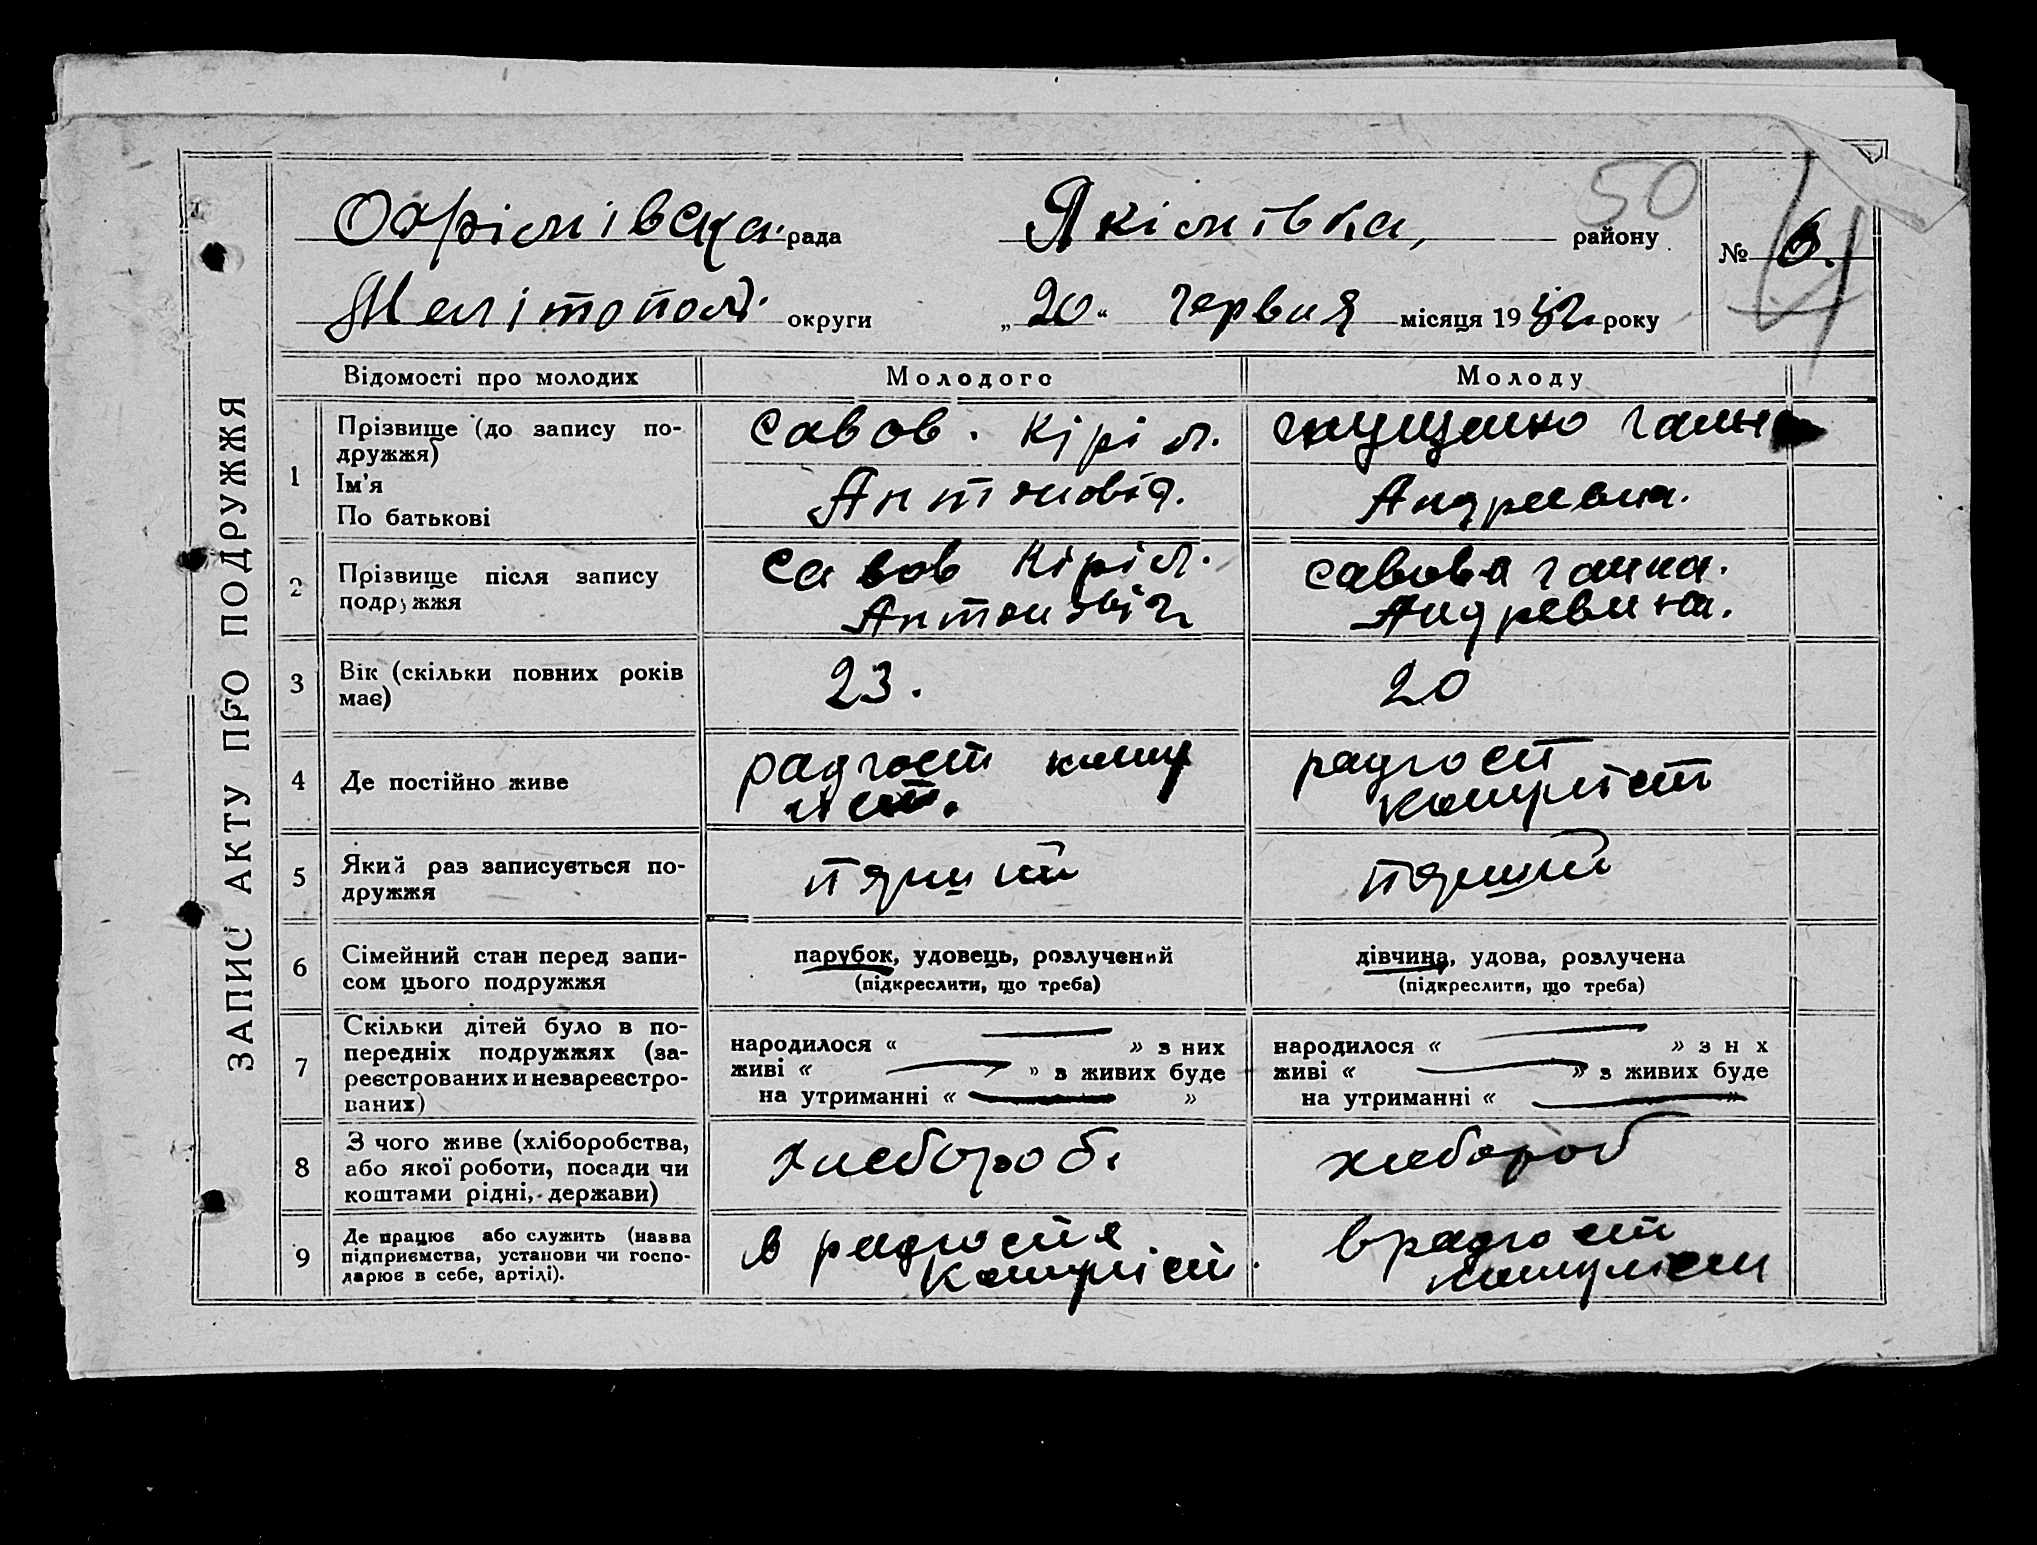 ЗАПИС АКТУ ПРО ПОДРУЖЖЯ
50
Охрімівска рада Якімівка, району № 6.
Мелітополь округи „20“ червня місяця 19 року
Відомості про молодих Молодого Молоду
1 Прізвище (до запису подружжя) Савов. Кіріл. Ганна
Ім'я
По батькові Антоновіч. Андреевна.
2 Прізвище після запису Савов Кіріл. Савова Ганна.
подружжя Антоновіч Андревина.
3 Вік (скільки повних років 23. 20
має)
4 Де постійно живе радгосп комуніст. радгосп
комуніст
5 Який раз записується подружжя пярший пярший
6 Сімейний стан перед записом цього подружжя парубок, удовець, розлучений дівчина, удова, розлучена
(підкреслити, що треба) (підкреслити, що треба)
7 Скільки дітей було в попередніх подружжях (зареєстрованих и незареєстрованих) народилося « » з них народилося « » з н х
живі « » з живих буде живі « » з живих буде
на утриманні « » на утриманні « »
8 З чого живе (хліборобства, хлебороб. хлебороб
або якої роботи, посади чи
коштами рідні, держави)
9 Де працює або служить (назва в радгоспя в радгосп
підприємства, установи чи господарює в себе, артілі). Комуніст. комуніст